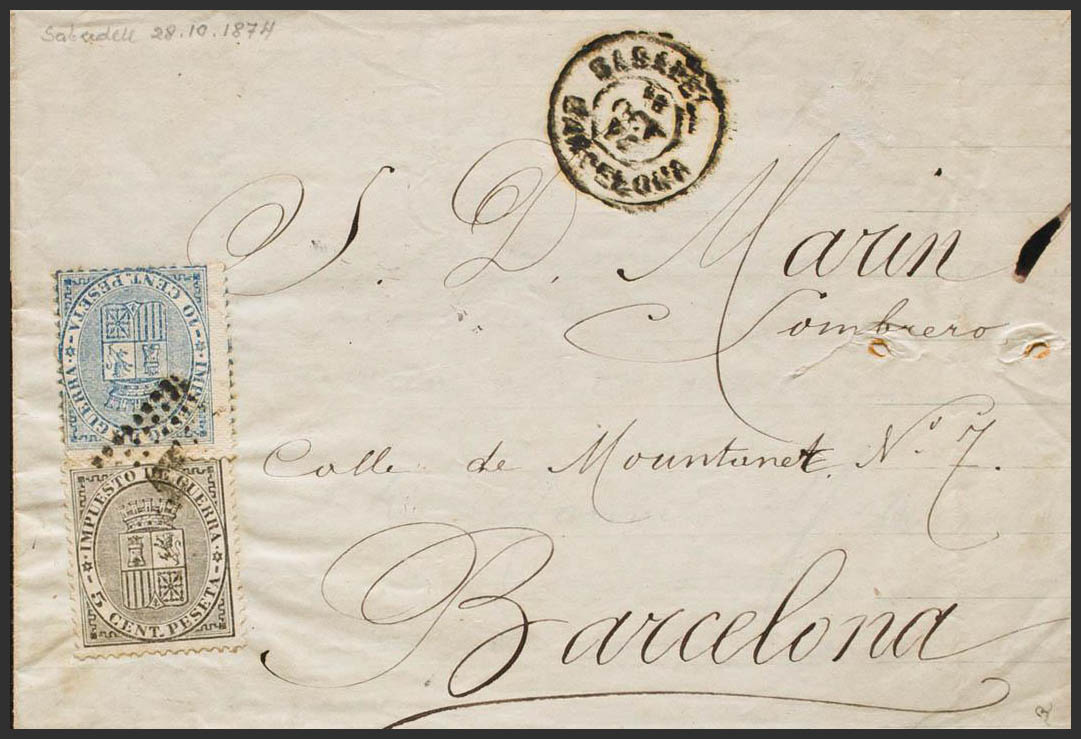 Sabadell 28.10.1874
SABADELL
BARCELONA
S. D. Marin
Combrero
Calle de Mountanet Nº 7.
Barcelona
IMPUESTO DE GUERRA
10 CENT. PESETA
IMPUESTO DE GUERRA
5 CENT. PESETA